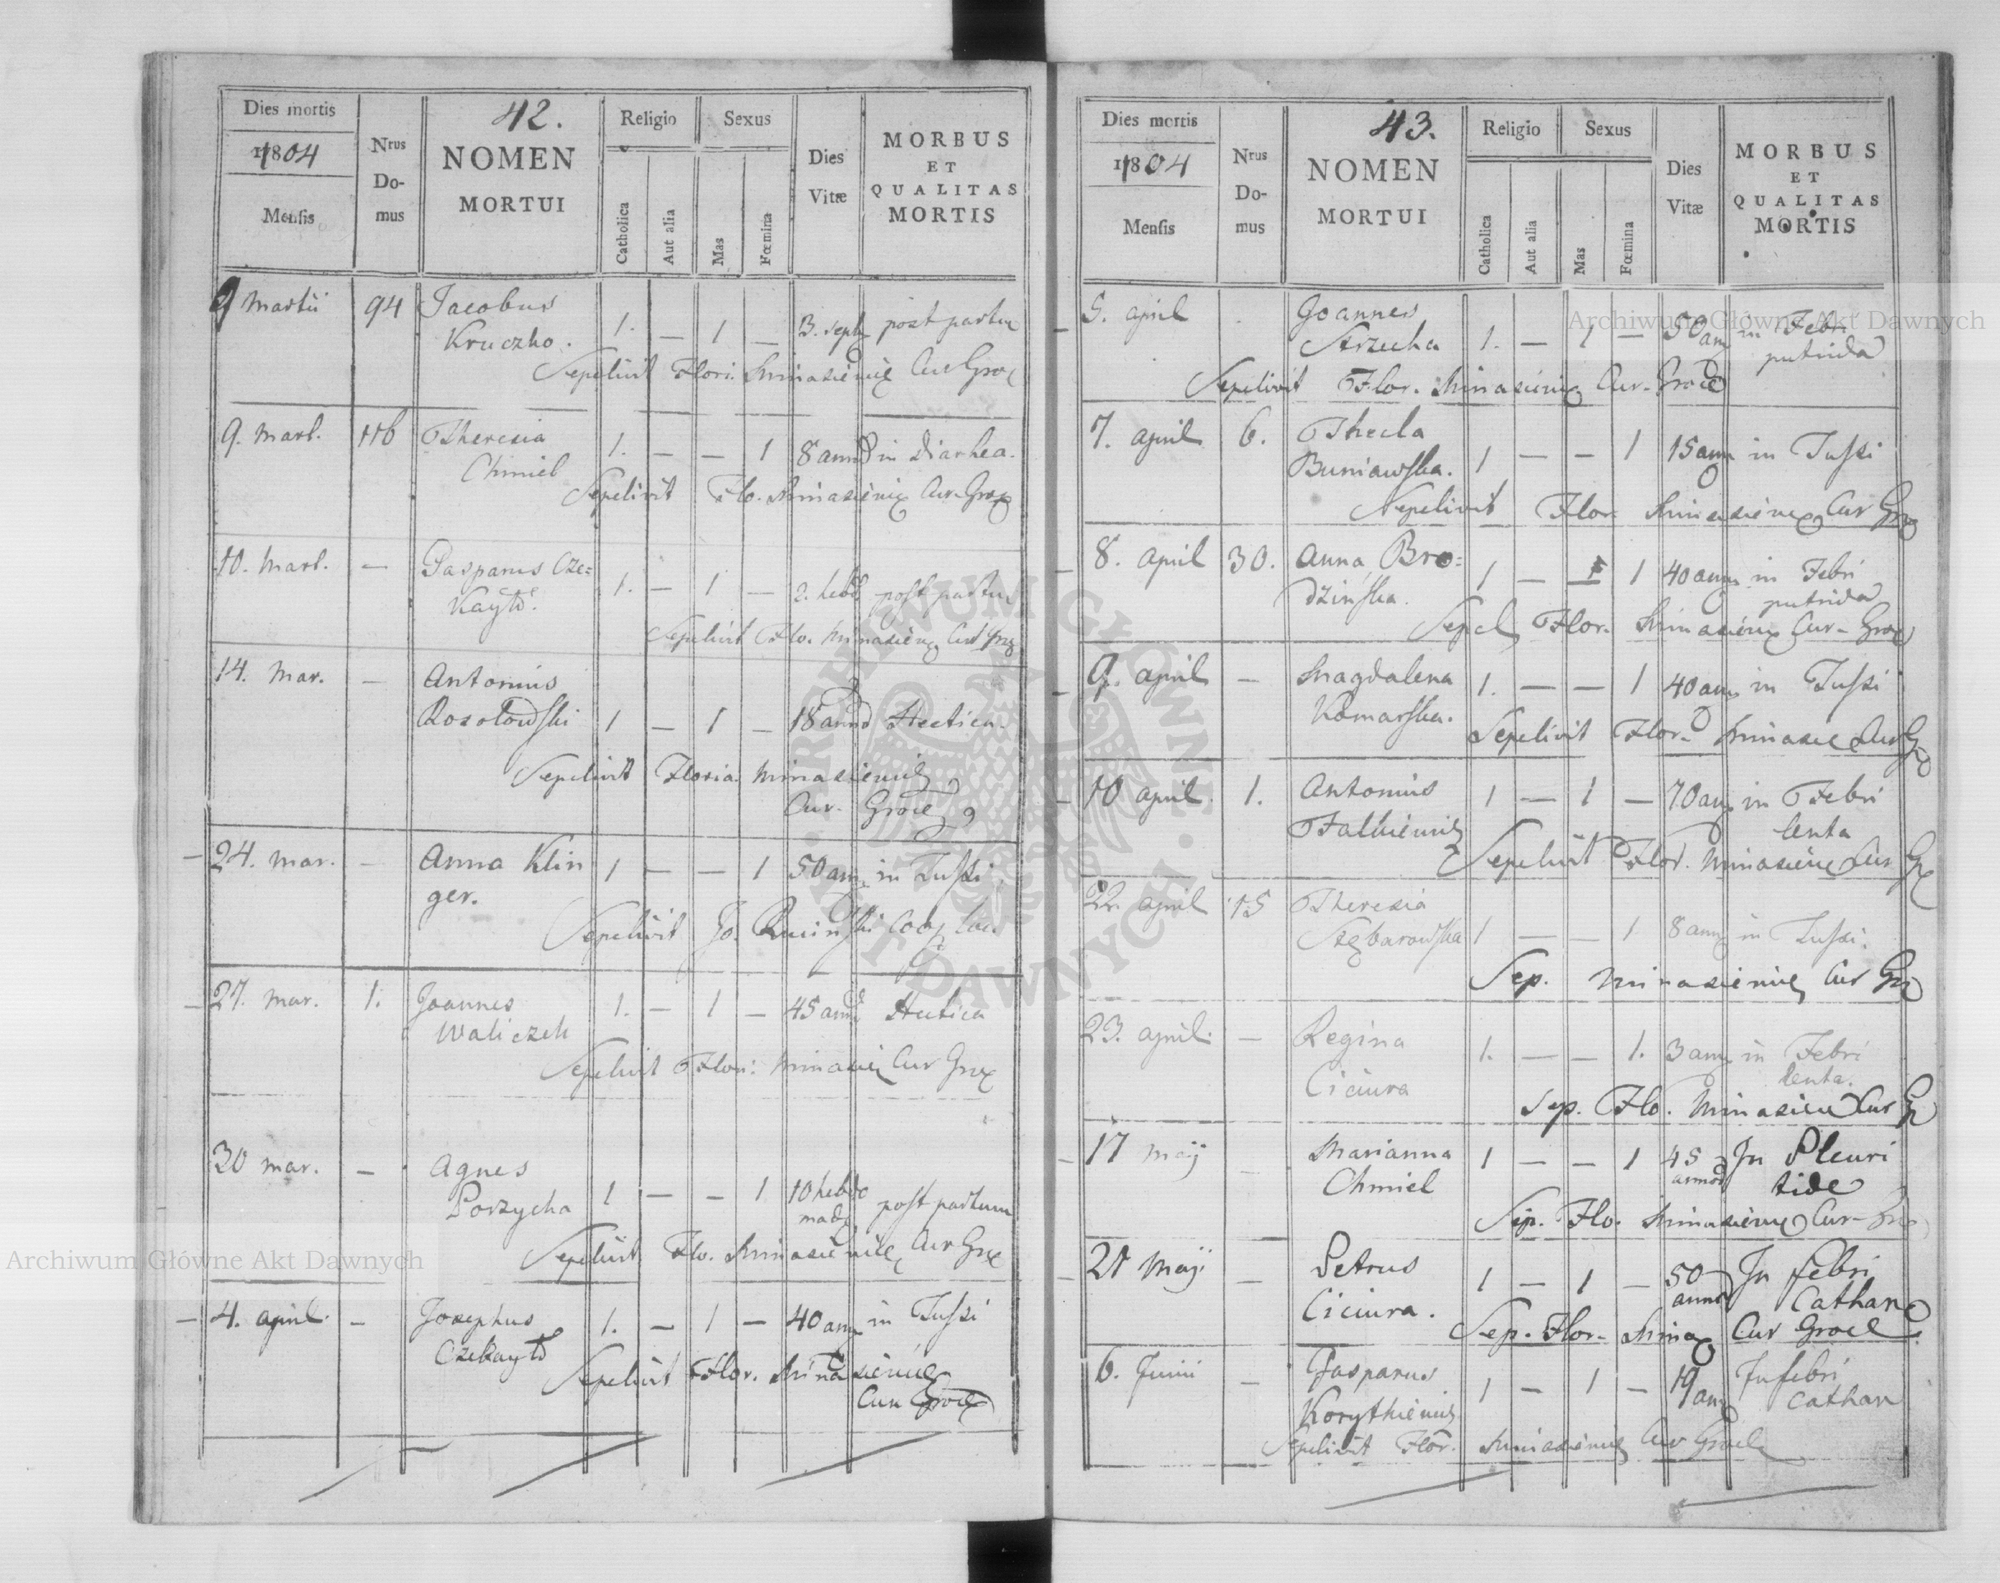 Dies mortis
1804
Mensis
Nrus
Do-
mus
42.
NOMEN
MORTUI
Religio
Catholica
Aut alia
Sexus
Mas
Fœmina
Dies
Vitæ
MORBUS
ET
QUALITAS
MORTIS
9 Martii 94 Jacobus
Kruczko. 1. — 1 — 3. sept post partu
Sepelivit Flori. Minasiewicz Cur Groc
9. Mart. 116 Theresia
Chmiel 1. — — 1 8 anno in Diarhea.
Sepelivit Flo. Minasiewicz Cur Groc
10. Mart. — Gasparus Cze=
Kayło. 1. — 1 — 2. hebd post partu
Sepelivit Flo. Minasiewicz Cur Groc
14. Mar. — Antonius
Rozołowski 1 — 1 — 18 anno Hectica.
Sepelivit Floria. Minasiewicz
Cur. Groc
24. Mar. — Anna Klin
ger. 1 — — 1 50 ann in Tussi
Sepelivit Jo. Ruciński
27. Mar. 1. Joannes
Waliczek 1. — 1 — 45 ann Hectica
Sepelivit Flori: Minasie Cur Groc
30 Mar. — Agnes
Porzycha 1 — — 1 10 hebdo
mad post partum
Sepelivit Flo. Minasiewicz Cur Groc
4. april. — Josephus
Czekayło 1. — 1 — 40 ann in Tussi
Sepelivit Flor. Minasiewicz
Cur Groc
Dies mortis
1804
Mensis
Nrus
Do-
mus
43.
NOMEN
MORTUI
Religio
Catholica
Aut alia
Sexus
Mas
Fœmina
Dies
Vitæ
MORBUS
ET
QUALITAS
MORTIS
5. april Joannes
Strzecha 1. — 1 — 50 ann in Febri
putrida
Sepelivit Flor. Minasiewicz Cur. Groc
7. april 6. Thecla
Buniawska. 1 — — 1 15 ann in Tussi
Sepelivit Flor. Minasiewicz Cur Groc
8. april 30. Anna Bro=
dzińska. 1 — — 1 40 ann in Febri
putrida
Sepel Flor. Minasiewicz Cur. Groc
9. april — Magdalena
Komarska. 1. — — 1 40 ann in Tussi
Sepelivit Flor. Minasie Cur Gro
10 april. 1. Antonius
Falkiewicz 1 — 1 — 70 ann in Febri
lenta
Sepelivit Flor. Minasiewic Cur Gr
22. april 15 Theresia
Szębarowska 1 — — 1 8 ann in Tussi.
Sep. Minasiewicz Cur Gr
23. april. — Regina
Ciciura 1. — — 1. 3 ann in Febri
lenta.
Sep. Flo. Minasiew Cur Gr
17 Maij — Marianna
Chmiel 1 — — 1 45
annor In Pleuri
tide
Sep. Flo. Minasiewicz Cur. Groc
21 Maij — Petrus
Ciciura. 1 — 1 — 50
annor In febri
Cathar
Sep. Flor. Minas Cur Groce.
6. Junii — Gasparus
Korytkiewicz 1 — 1 — 19 ann In febri
Cathar
Sepelivit Flor. Minasiewicz Cur Groc
Archiwum Główne Akt Dawnych
Archiwum Główne Akt Dawnych
ARCHIWUM GŁÓWNE · AKT DAWNYCH ·